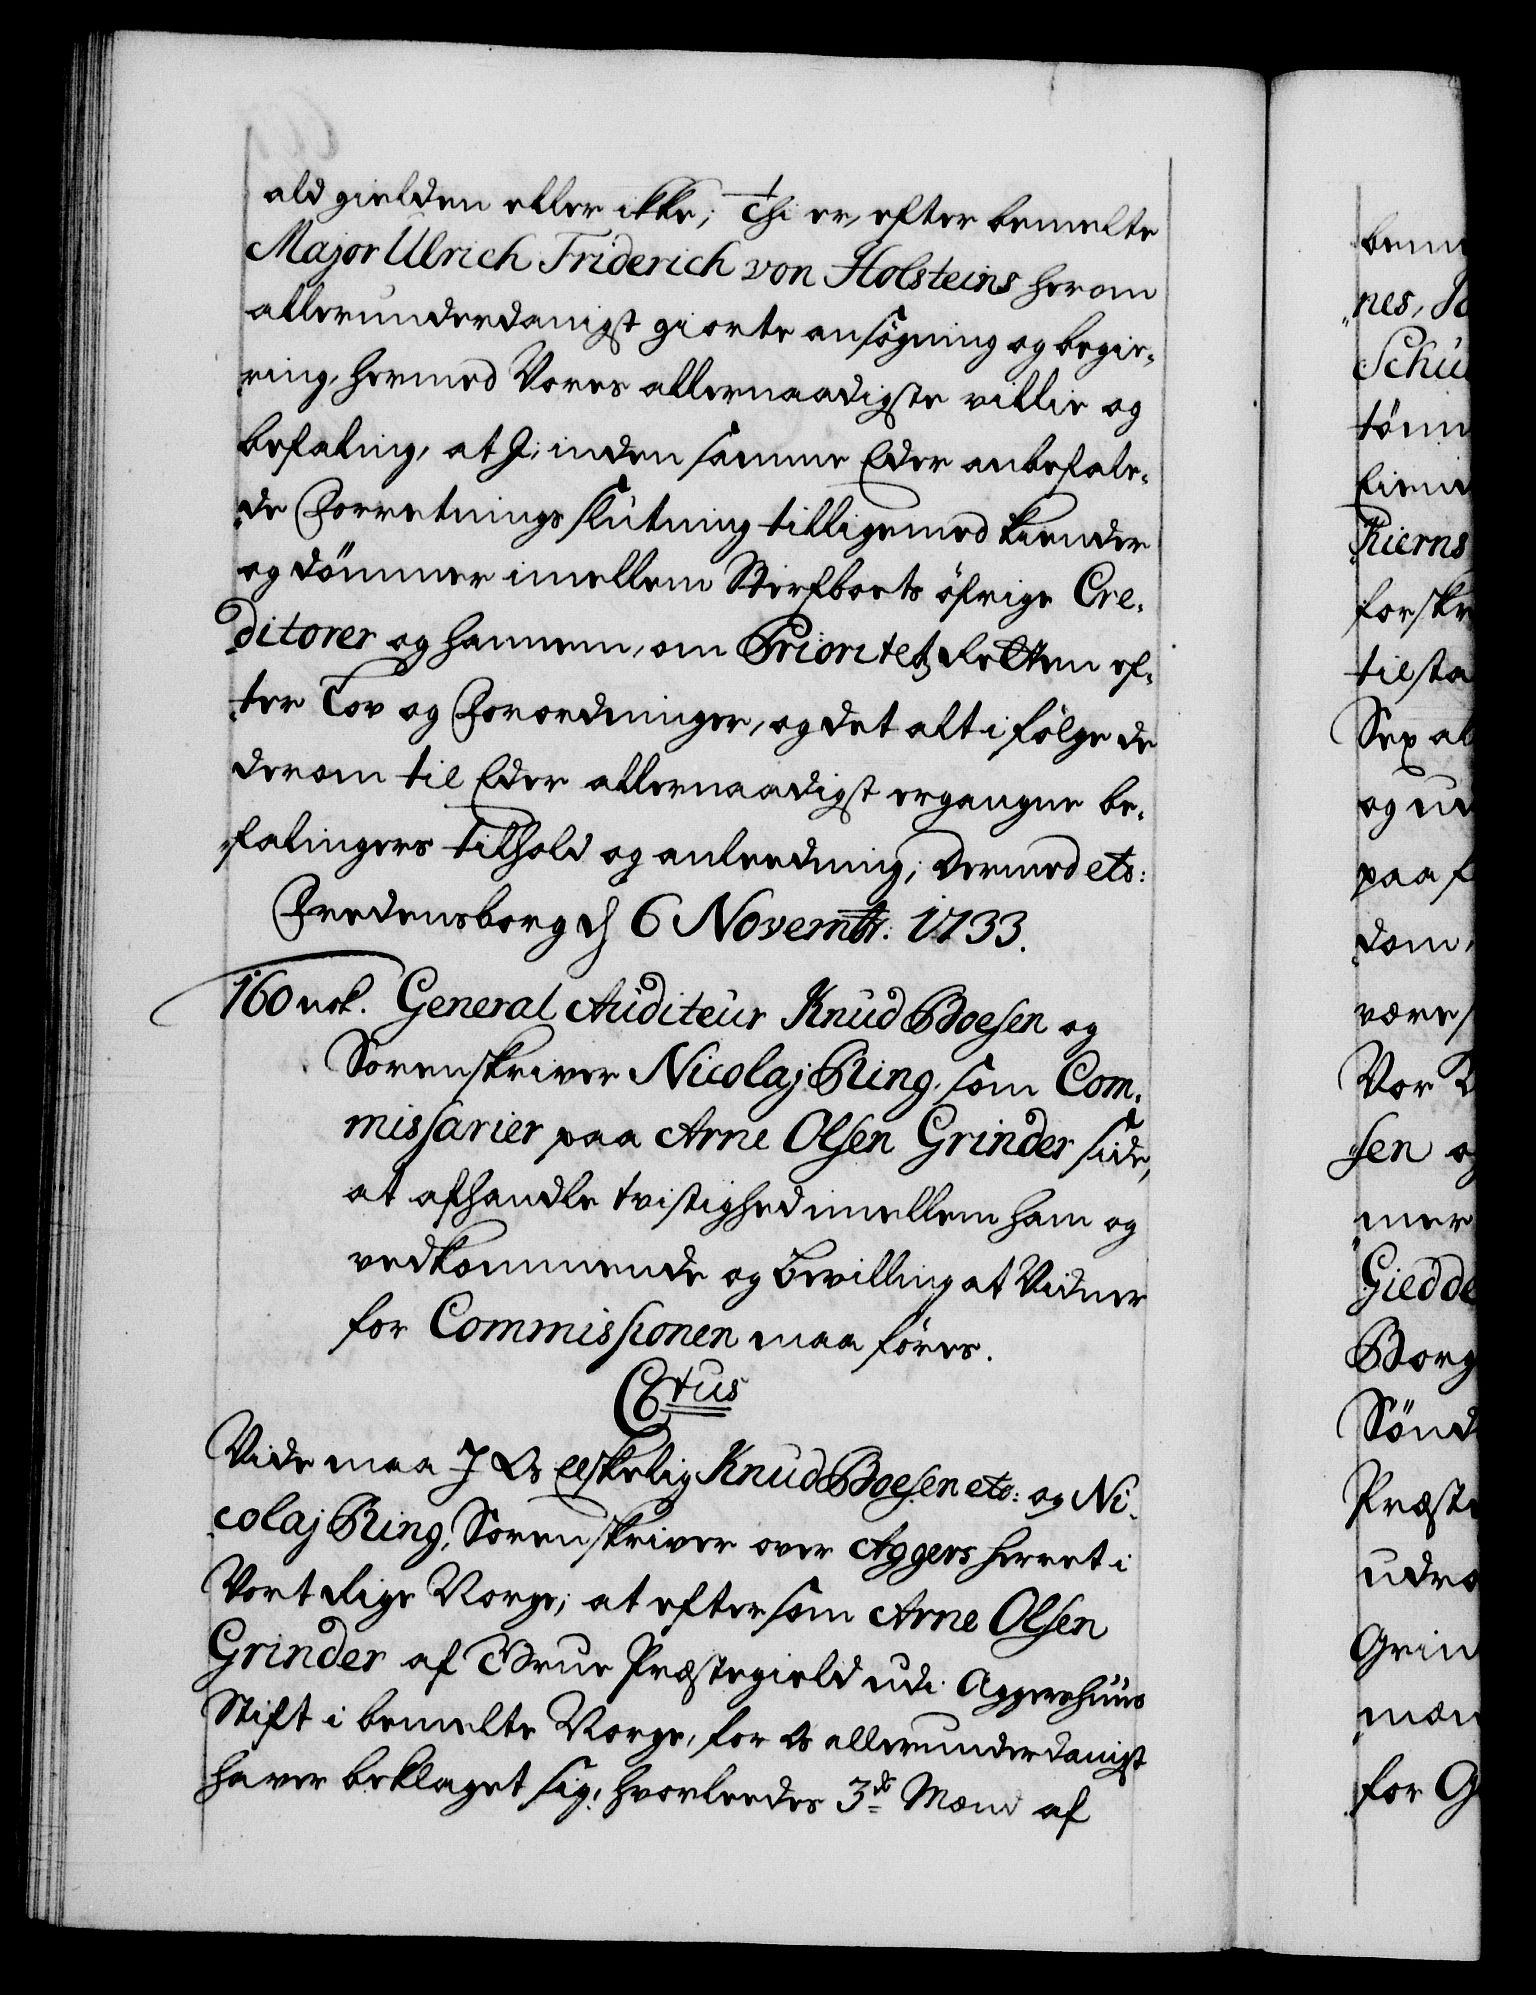 ald gielden eller ikke; Thi er, efter bemelte
Major Ulrich Friderich von Holsteins herom
allerunderdanigst giorte ansøgning og begie-
ring, hermed Vores allernaadigste villie og
befaling, at I, inden samme Eder anbefale-
de Forretnings slutning tilligemed kiender
og dömmer imellem Sterfboets öfrige Cre-
ditorer og hannem, om Prioritets Retten ef-
ter Lov og Forordninger, og det alt i fölge de
derom til Eder allernaadigst ergangne be-
falingers tilhold og anleedning; Dermed etc:
Fredensborg d 6 Novembr. 1733.
160 rok. General Auditeur Knud Boesen og
Sorenskriver Nicolaj Ring, som Com-
missarier paa Arne Olsen Grinder side,
at afhandle tvistighed imellem ham og
vedkommende og Bevilling at Vidner
for Commissionen maa föres.
C6tus
Vide maa I Os Elskelig Knud Boesen etc: og Ni-
colaj Ring, Sorenskriver over Aggers herret i
Vort Rige Norge; at eftersom Arne Olsen
Grinder af Grue Præstegield udi Aggershuus
Stift i bemelte Norge, for Os allerunderdanigst
haver beklaget sig, hvorleedes 3de Mænd af
bem
nes, Jo
Schu
tönn
Eien
Kierns
forskr
tilsta
Sex al
og ud
paa f
dom,
være
Vor
sen og
mer
Giedde
Borg
Sönd
Præste
udro
Grin
mæn
for G